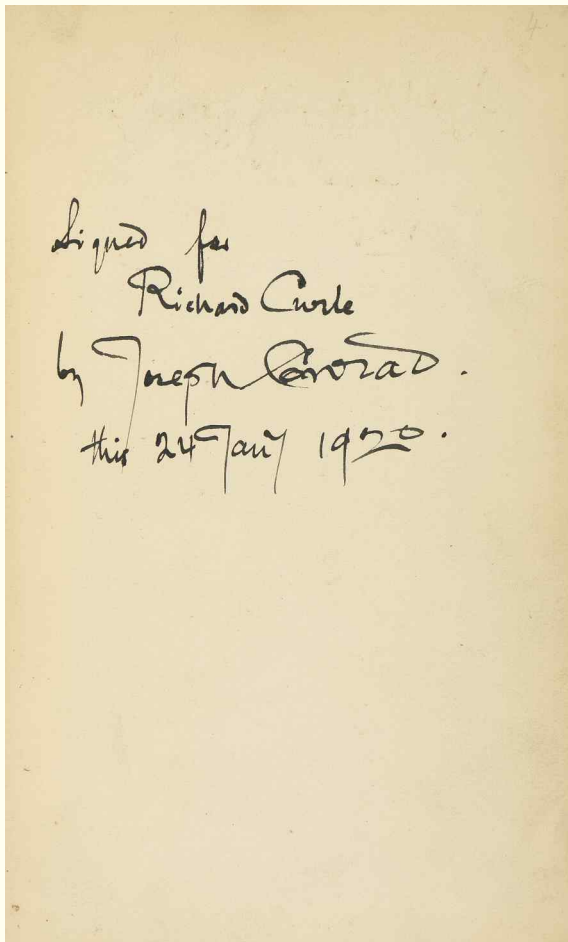 4
Signed for
Richard Curle
by Joseph Conrad.
this 24 Jany 1920.